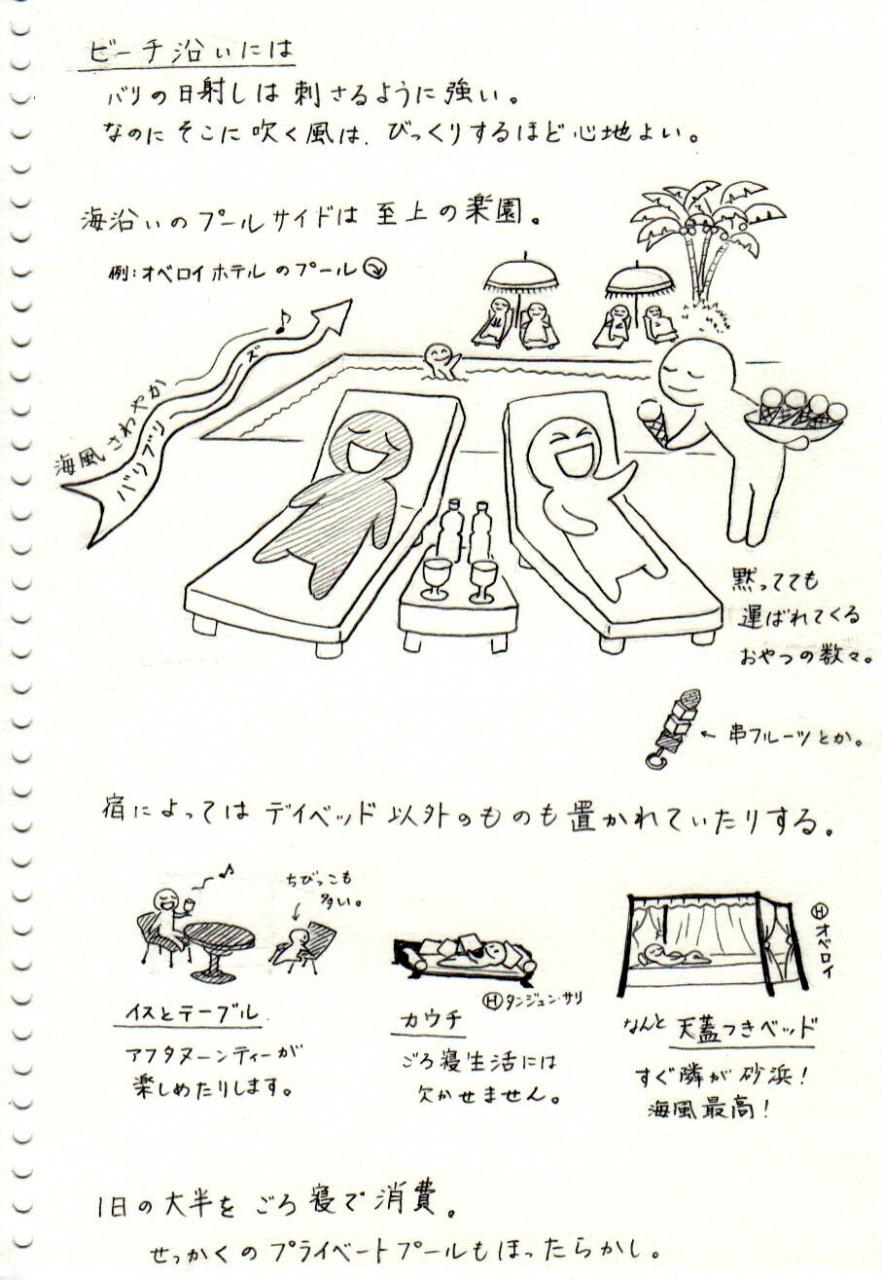 ビーチ沿いには
バリの日射しは刺さるように強い。
なのにそこに吹く風は、びっくりするほど心地よい。
海沿いのプールサイドは至上の楽園。
例:オベロイホテルのプール
海風さわやか
バリブリーズ
黙ってても
運ばれてくる
おやつの数々。
← 串フルーツとか。
宿によってはデイベッド以外のものも置かれていたりする。
ちびっこも
多い。
イスとテーブル
アフタヌーンティーが
楽しめたりします。
Ⓗタンジュン・サリ
カウチ
ごろ寝生活には
欠かせません。
Ⓗオベロイ
なんと天蓋つきベッド
すぐ隣が砂浜!
海風最高!
1日の大半をごろ寝で消費。
せっかくのプライベートプールもほったらかし。